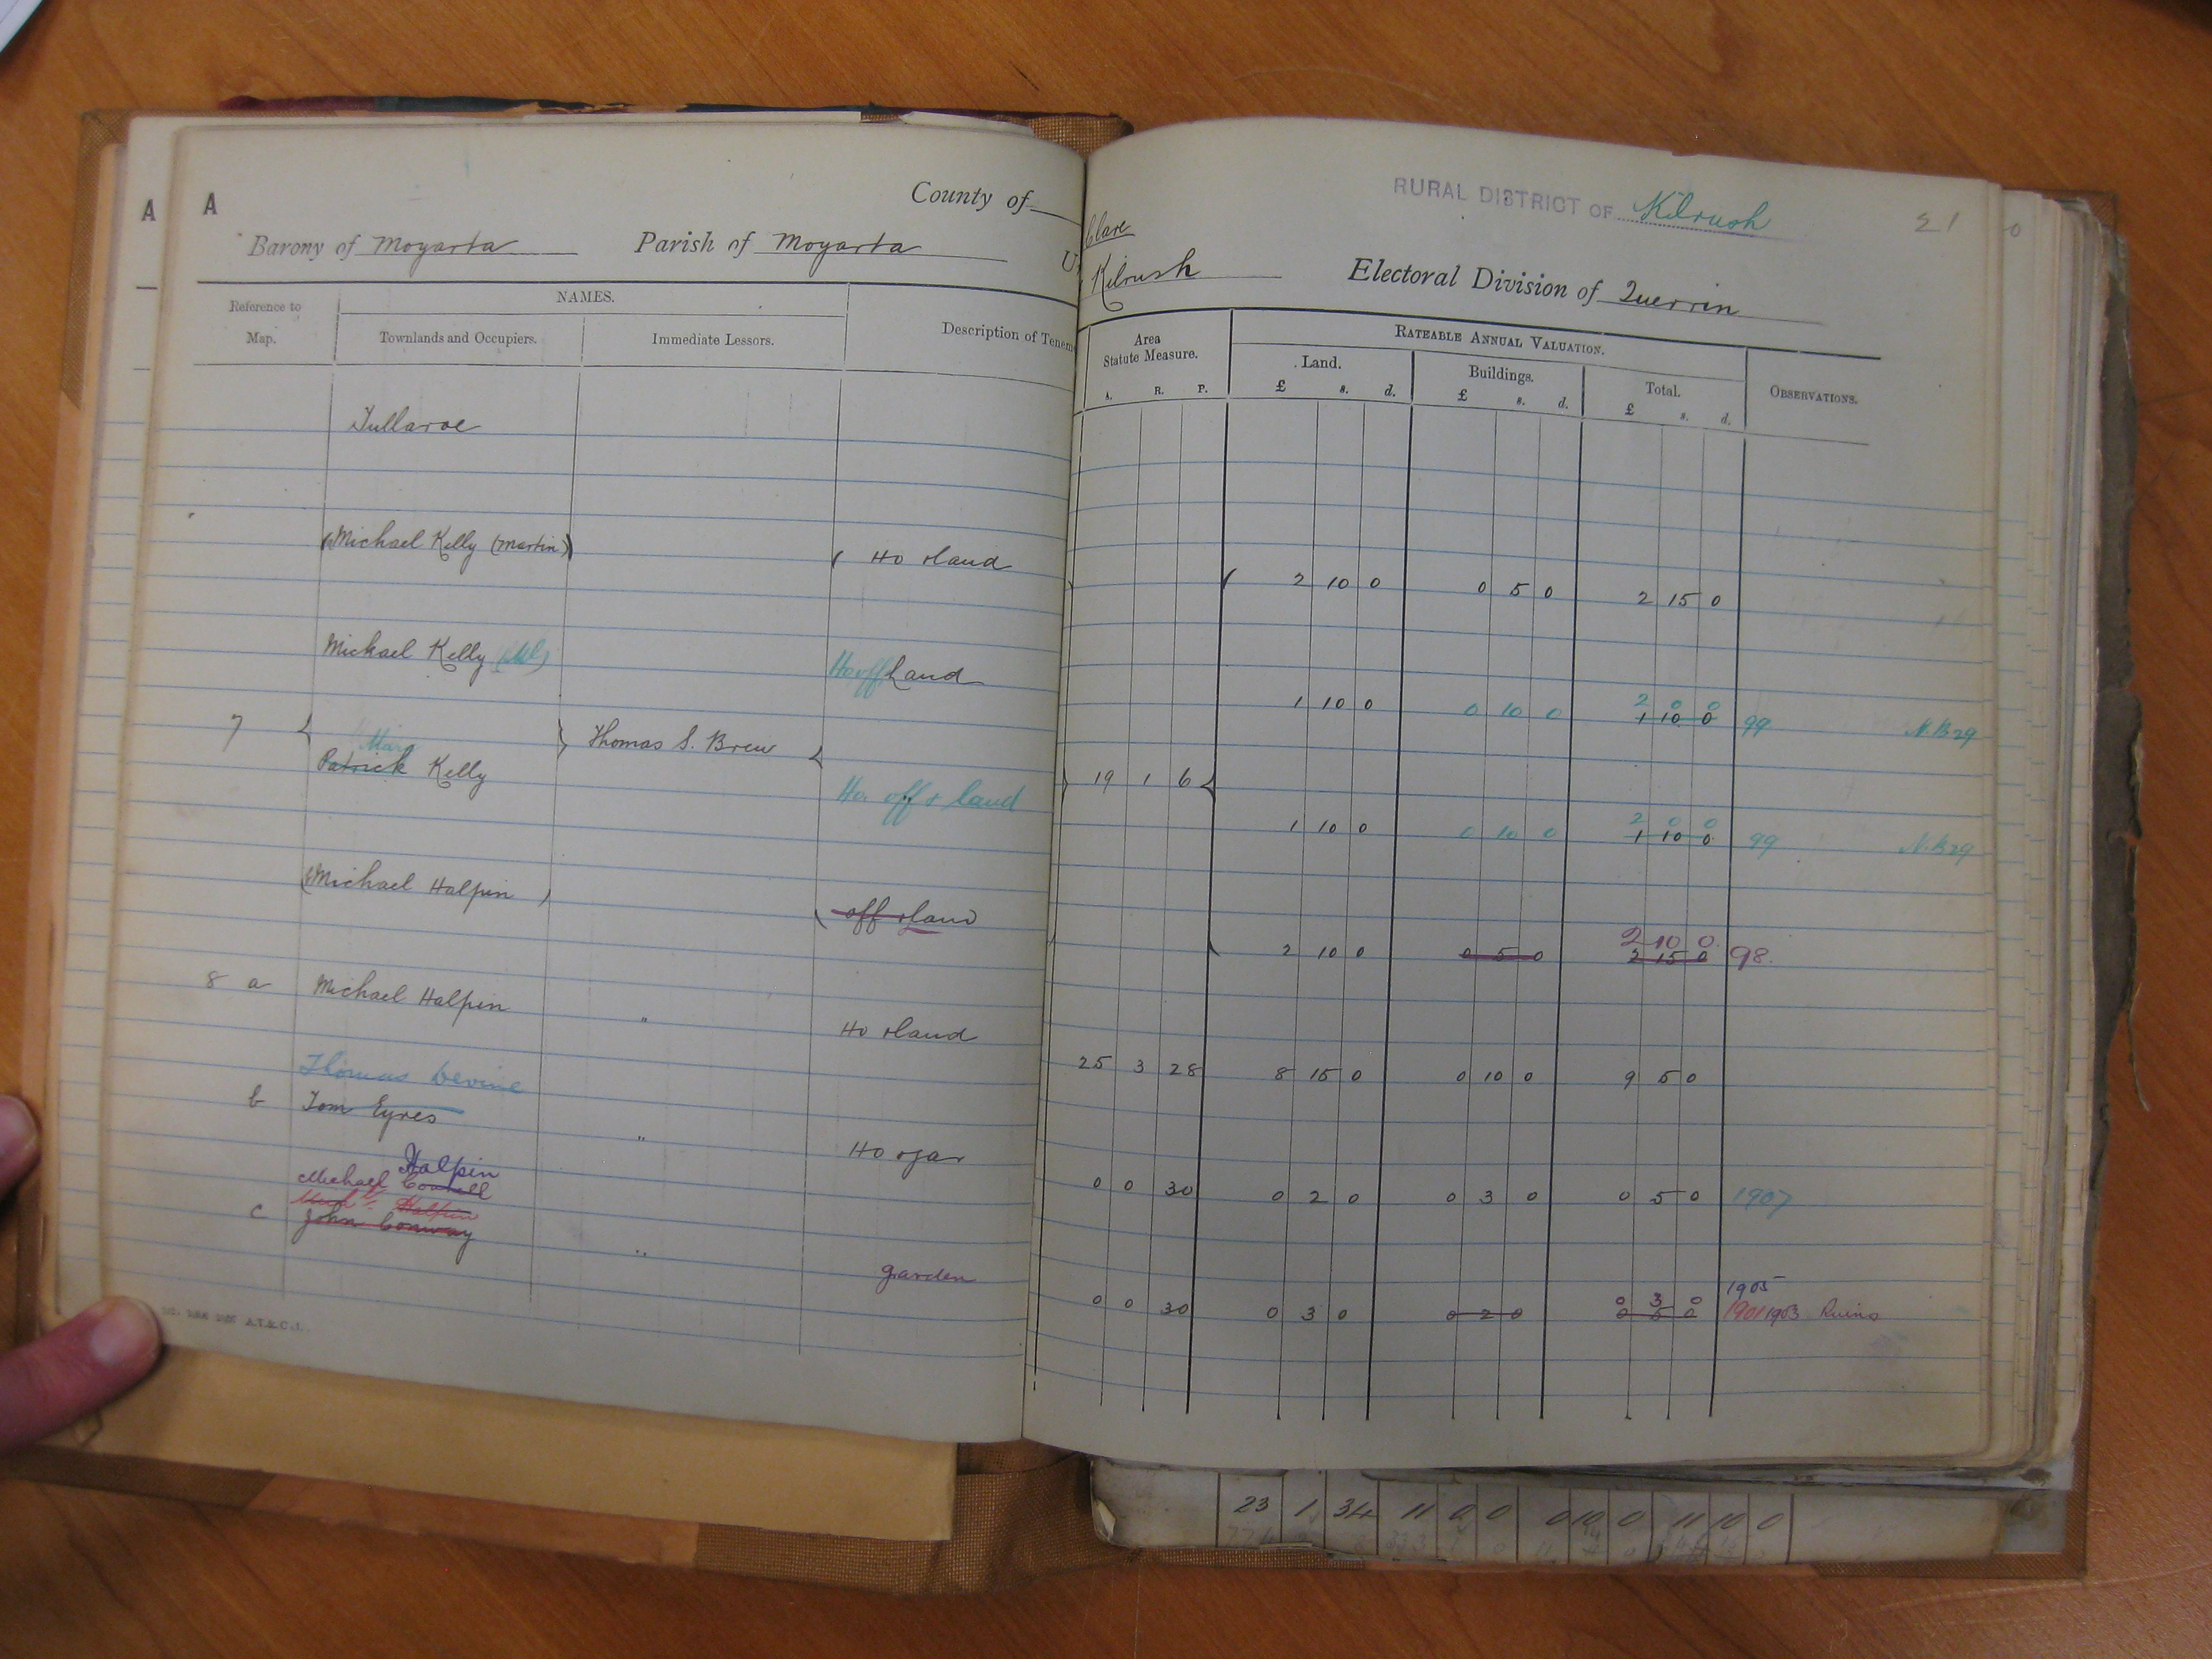 A
A
County of
Clare
RURAL DISTRICT OF Kilrush
21
0
Barony of Moyarta Parish of Moyarta
Kilrush Electoral Division of Querrin
Reference to Map.
NAMES.
Townlands and Occupiers.
Immediate Lessors.
Description of Tenem
Area Statute Measure.
A. R. P.
RATEABLE ANNUAL VALUATION.
Land.
£ s. d.
Buildings.
£ s. d.
Total.
£ s. d.
OBSERVATIONS.
Tullaroe
Michael Kelly (Martin) Ho & land 2 10 0 0 5 0 2 15 0
2 0 0
Michael Kelly Ho off Land 1 10 0 0 10 0 1 10 0 99 N.B 29
7 Thomas S. Brew 19 1 6
Mary
2 0 0
Patrick Kelly Ho. off & land 1 10 0 0 10 0 1 10 0 99 N.B 29
2 10 0
Michael Halpin off & land 2 10 0 0 5 0 2 15 0 98.
8 a Michael Halpin " Ho & land 25 3 28 8 15 0 0 10 0 9 5 0
Thomas Devine
b Tom Eyres " Ho & gar 0 0 30 0 2 0 0 3 0 0 5 0 1907
Halpin
Michael Connell
Halpin
1905
0 3 0
c John Conway " garden 0 0 30 0 3 0 0 2 0 0 5 0 1901 1903 Ruins
23 1 34 11 0 0 0 10 0 11 10 0